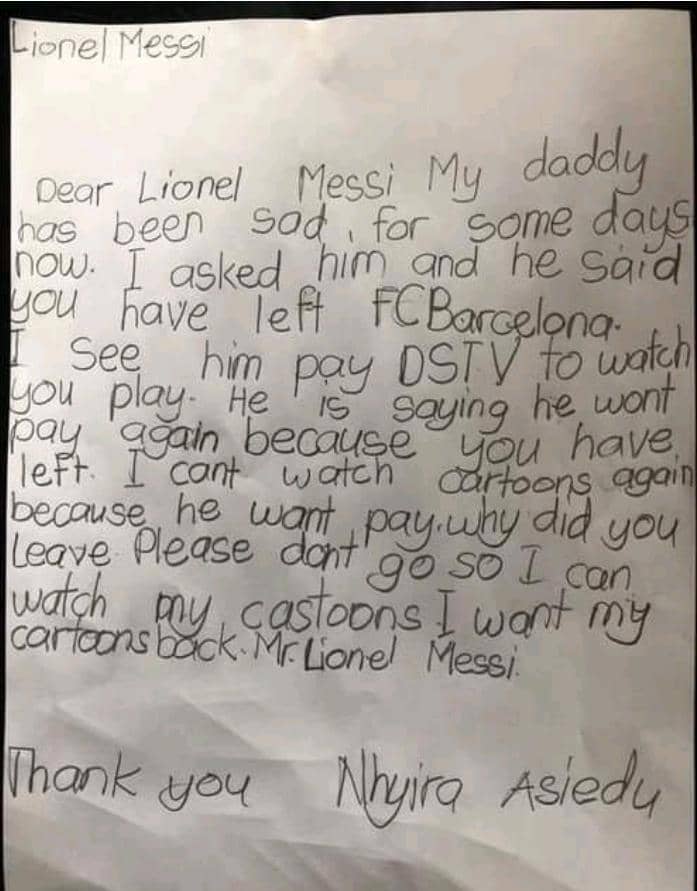 Lionel Messi
Dear Lionel Messi My daddy
has been sad, for some days
now. I asked him and he said
you have left FCBarcelona.
I See him pay DSTV to watch
you play. He is saying he wont
pay again because you have
left. I cant watch cartoons again
because he want pay.why did you
Leave Please dont go so I can
watch my castoons I want my
cartoons back. Mr. Lionel Messi.
Thank you Nhyira Asiedu